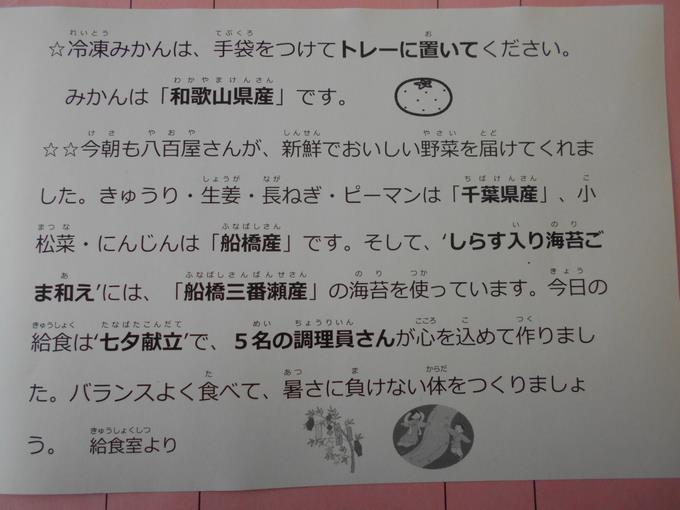 ☆冷凍みかんは、手袋をつけてトレーに置いてください。
みかんは「和歌山県産」です。
☆☆今朝も八百屋さんが、新鮮でおいしい野菜を届けてくれま
した。きゅうり・生姜・長ねぎ・ピーマンは「千葉県産」、小
松菜・にんじんは「船橋産」です。そして、‘しらす入り海苔ご
ま和え’には、「船橋三番瀬産」の海苔を使っています。今日の
給食は‘七夕献立’で、５名の調理員さんが心を込めて作りまし
た。バランスよく食べて、暑さに負けない体をつくりましょ
う。　給食室より